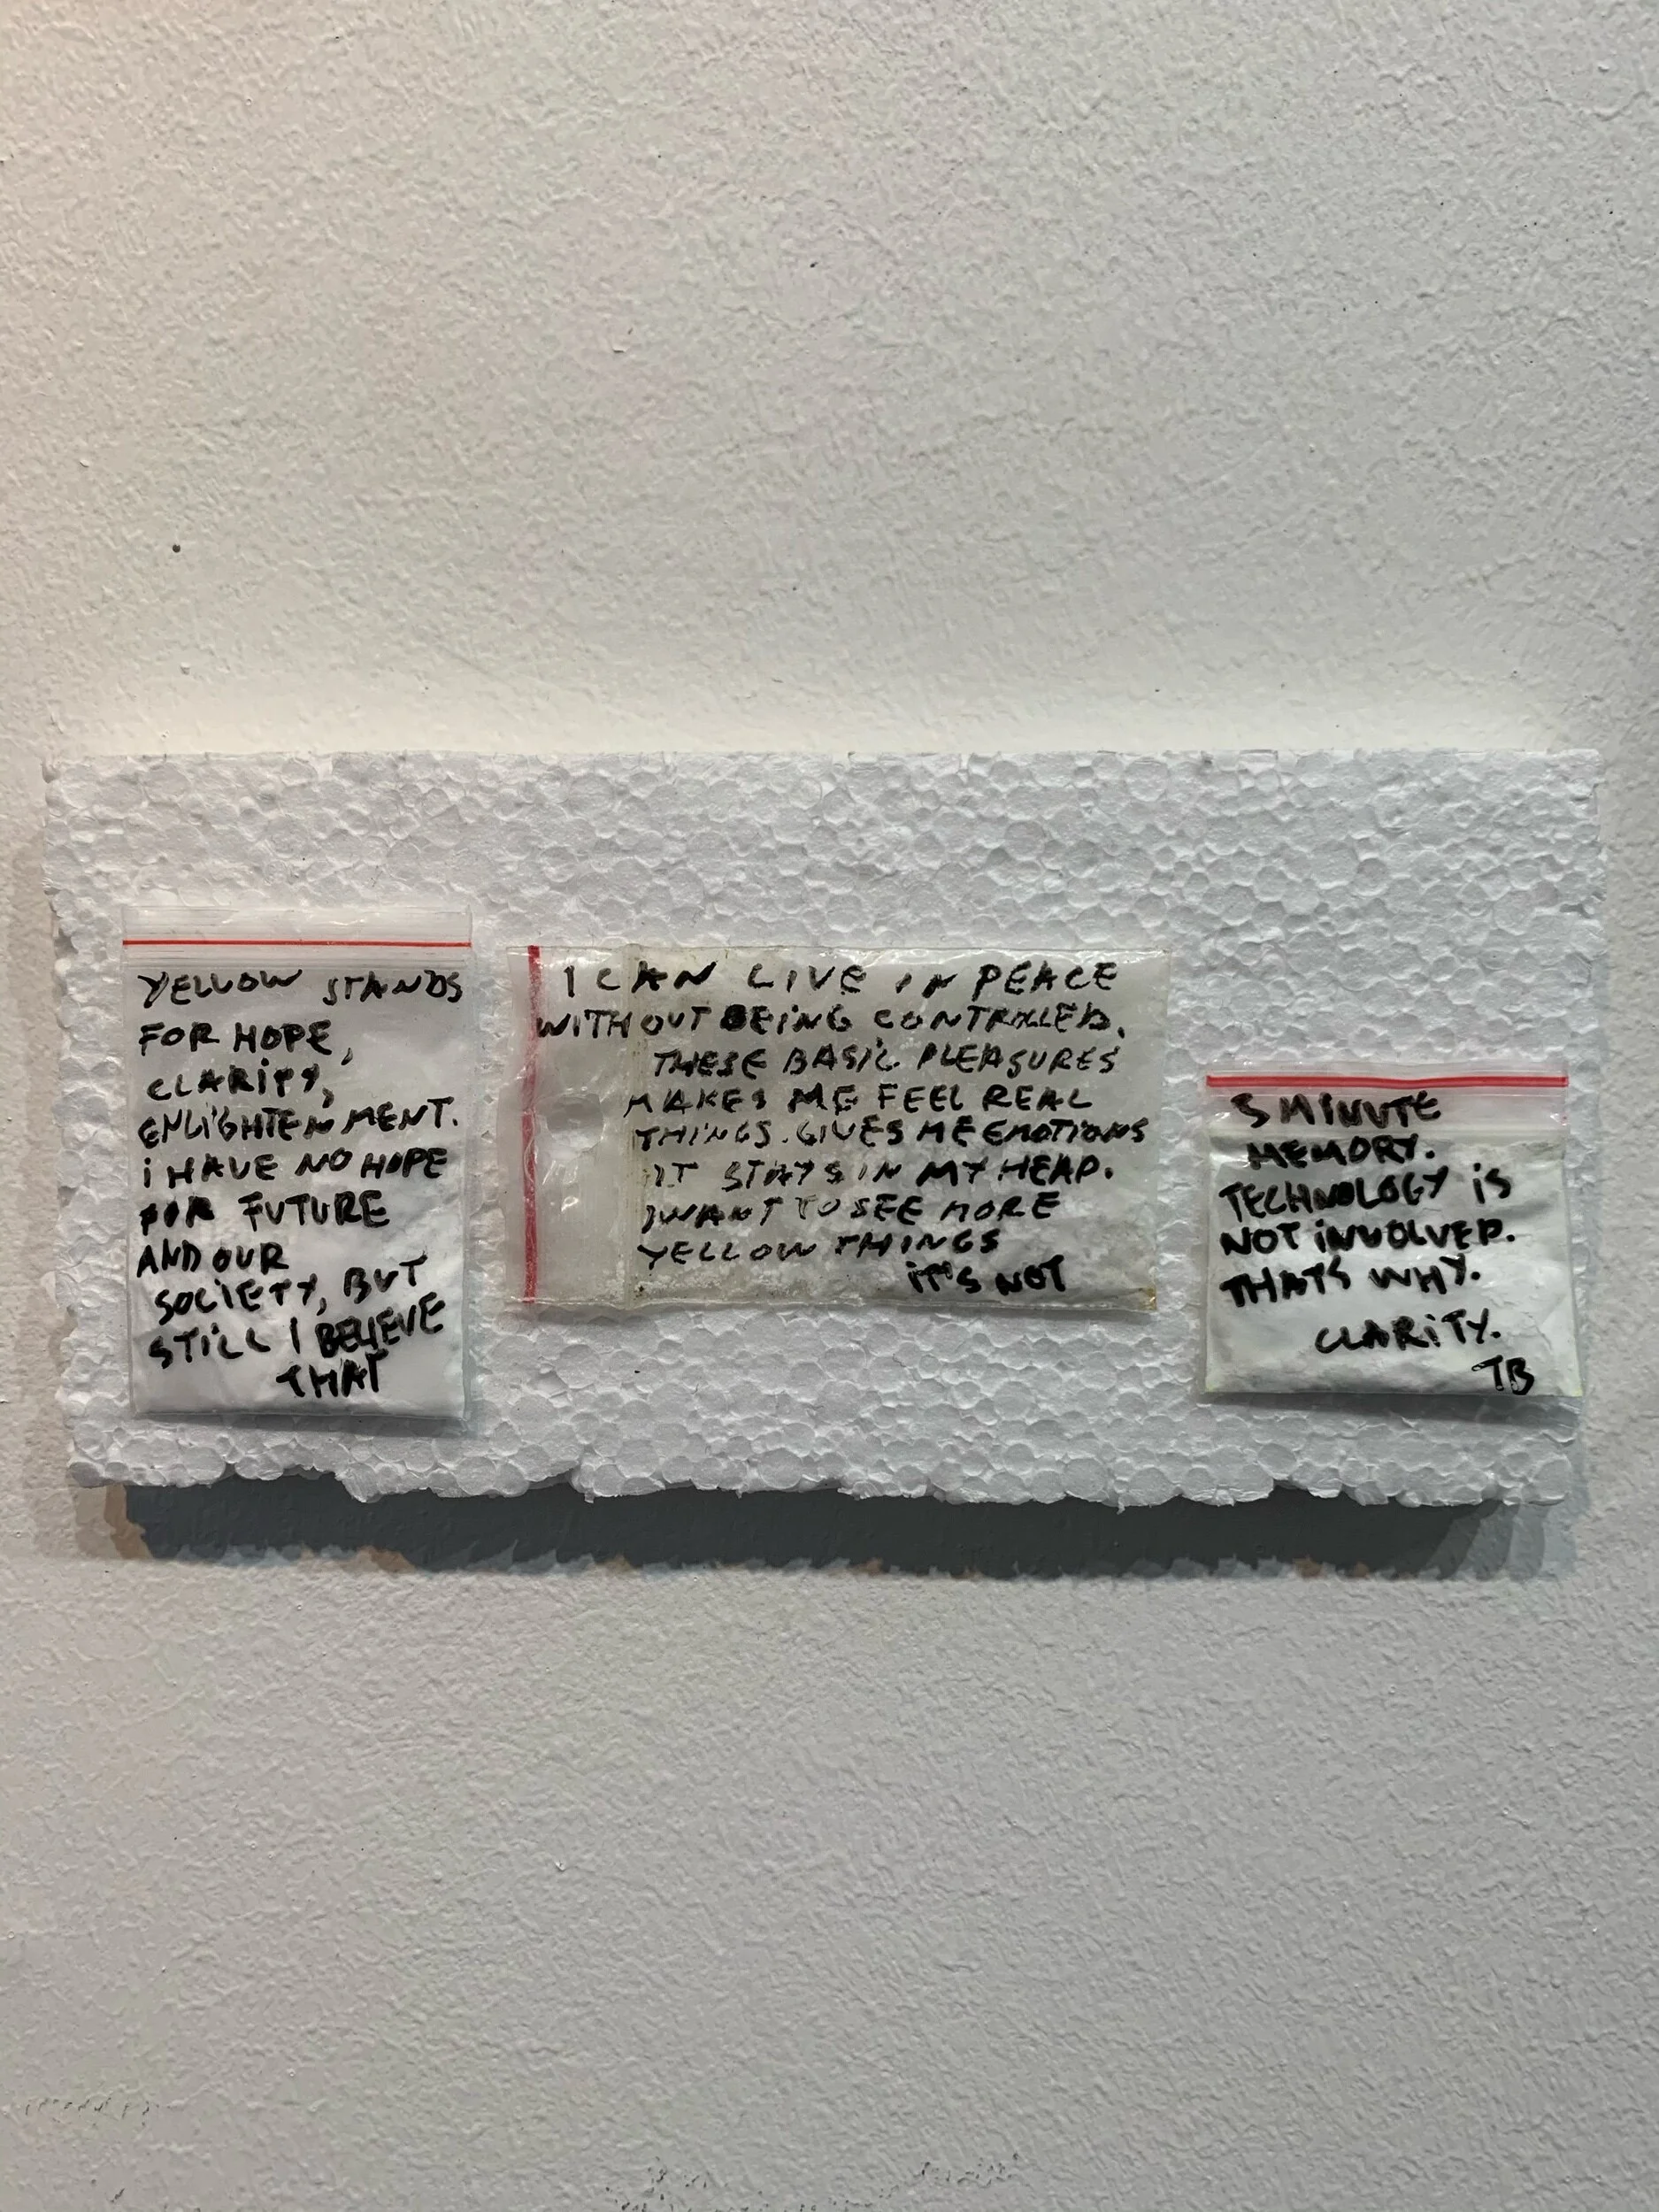 YELLOW STANDS
FOR HOPE,
CLARITY,
ENLIGHTENMENT.
i HAVE NO HOPE
FOR FUTURE
AND OUR
SOCIETY, BUT
STILL I BELIEVE
THAT
I CAN LIVE IN PEACE
WITHOUT BEING CONTROLLED.
THESE BASIC PLEASURES
MAKES ME FEEL REAL
THINGS. GIVES ME EMOTIONS
IT STAYS IN MY HEAD.
I WANT TO SEE MORE
YELLOW THINGS
IT'S NOT
MINUTE
MEMORY.
TECHNOLOGY iS
NOT iNVOLVED.
THATS WHY.
CLARiTY.
TB